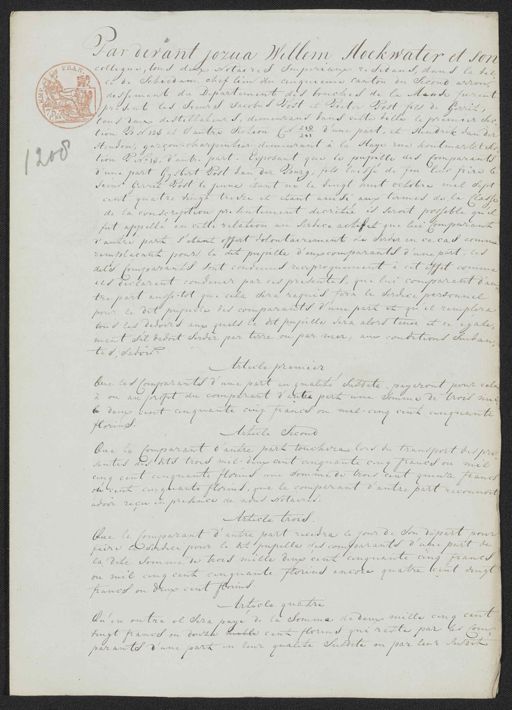 Par devant Jozua Willem Hockwater et son
collegue, tous deux notaires Imperiaux residans, dans la vil
le de Schiedam, chef lieu du cinquieme canton du second arron
dissement du Departement des bouches de la Meuse furent
present les Sieurs Jacobus Post et Pieter Post fils de
tous deux distillateurs, demeurans dans cette ville le premier Sec
tion B. No. 136 et l'autre Section C. No. d'une part, et Hendrik van der
garçon charpentier, demeurant à la Haye rue Sec
tion d'autre part. Exposant que le pupille des Comparants
d'une part Gysbert Post van der fils laissé de feu leur frère le
Sieur Gerrit Post le jeune étant né le vingt huit octobre mil sept
cent quatre vingt treize et étant ainsi aux termes de la Classe
de la conscription presentement decretée il seroit possible qu'il
fut appellé en cette relation au service actif et que lui comparant
d'autre part s'étant offert volontairement de servir en ce cas comme
remplaçant pour le dit pupille d'eux comparants d'une part, les
dits Comparants sont convenus reciproquement à cet effet comme
ils declarent convenir par ces presentes, que lui comparant d'au
tre part aussi-tot que cela sera requis fera le service personnel
pour le dit pupille des comparants d'une part et qu'il remplira
tous les devoirs aux quels le dit pupille sera alors tenu et ce egale
ment s'il devoit servir par terre ou par mer, aux conditions suivan
tes, savoir
Article premier
Que les Comparants d'une part en qualité susdite, payeront pour cela
à ou au profit du comparant d'autre part une somme de trois mil
le deux cent cinquante cinq francs ou mil cinq cent cinquante
florins.
Article Second
Que le Comparant d'autre part touchera lors du transport des pre
sentes des dits trois mil deux cent cinquante cinq francs ou mil
cinq cent cinquante florins une somme de trois cent quinze francs
ou cent cinquante florins, que le comparant d'autre part reconnoit
avoir reçu en presence de nous Notaires.
Article trois.
Que le Comparant d'autre part recevra le jour de son depart pour
faire le service pour le dit pupille des comparants d'une part de
la dite Somme de trois mille deux cent cinquante cinq francs
ou mil cinq cent cinquante florins encore quatre cent vingt
francs ou deux cent florins.
Article quatre
Qu'en outre il sera payé de la Somme de deux mille cinq cent
vingt francs ou douze cent florins qui reste par les Com
parants d'une part en leur qualité susdite ou par leur susdit
1208